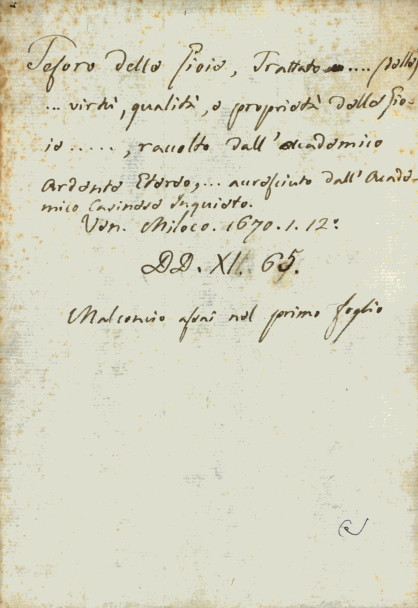 Tesoro delle Gioie, Trattato .... (delle
... virtù, qualità, e proprietà delle Gio-
ie ....., raccolto dall' academico
Ardente Etereo,... accresciuto dall' Acade-
mico Casinense Inquieto.
Ven. Miloco. 1670. 1. 12º
DD. XII. 65.
Malconcio assai nel primo foglio